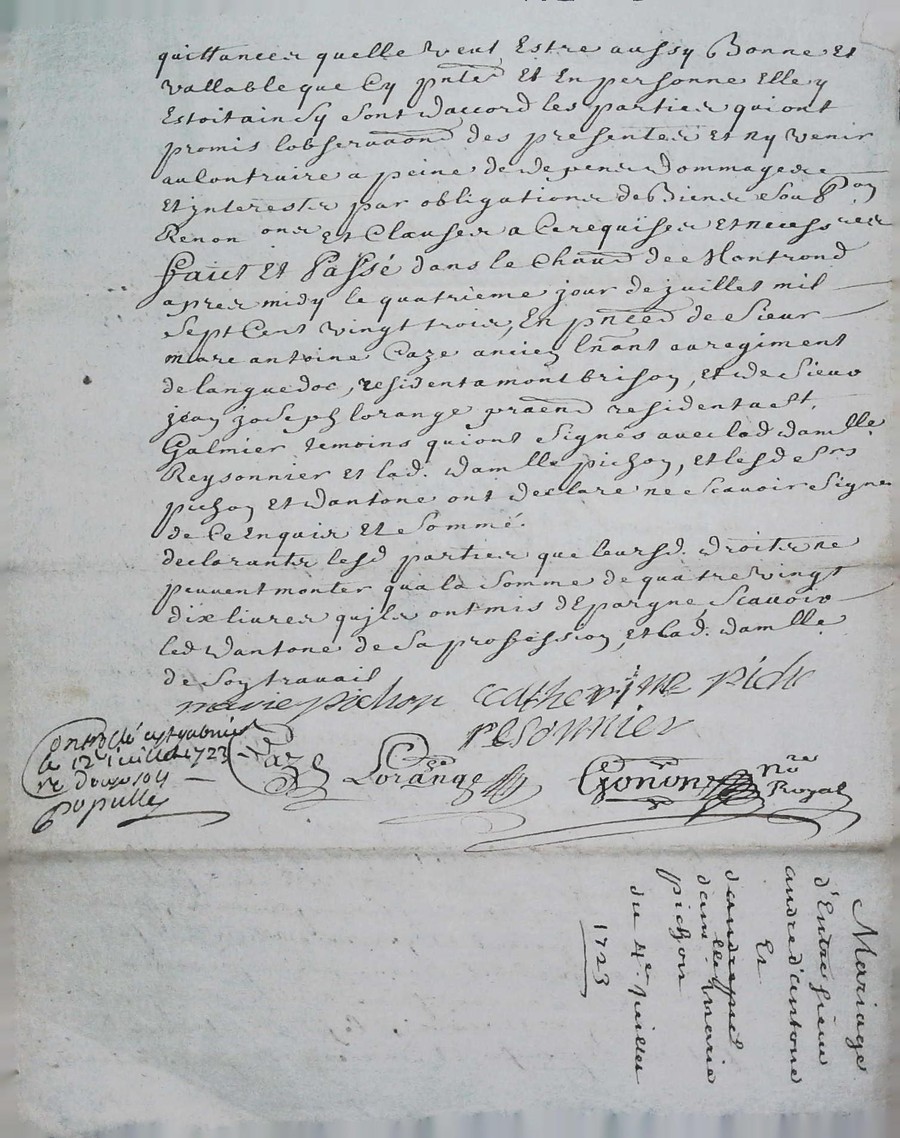 quittancer quelle veut Estre aussy Bonne Et
vallable que Cy pnte Et En personne Elle y
Estoit ainsy sont daccord les parties qui ont
promis lobservaon des presentes Et ny venir
au Contraire a peine de depens dommages
Et jnterests par obligations de Biens soub
Renon ons Et Clauses a Ce requises Et necessres
Fait Et Passé dans le Chaud de Montrond
apres midy le quatrieme jour de juillet mil
Sept Cent vingt trois, En pnce de Sieur
marc antoine Caze ancien Lnant au regiment
de languedoc, resident a montbrison, et de Sieur
jean joseph lorange praen resident a st.
Galmier temoins qui ont Signés avec lad damlle
Reysonnier et lad. damlle pichon, et lesd Srs
pichon et dantone ont declaré ne Scavoir Signer
de Ce Enquis Et Sommé.
declarants lesd parties que leursd. droits ne
peuvent monter qua la Somme de quatre vingt
dix livres quils ont mis dEpargne Scavoir
led dantone de Sa profession, et lad. damlle
de Son travail
marie pichon Catherine picho
resonnier
Controllé a st galmier
le 12e juillet 1723
rs douze sols
populle
Caze Lorange Gonon nre
Royal
Mariage
d'Entre sieur
andre d'antone
Et
damlle marie
pichon
du 4e juillet
1723